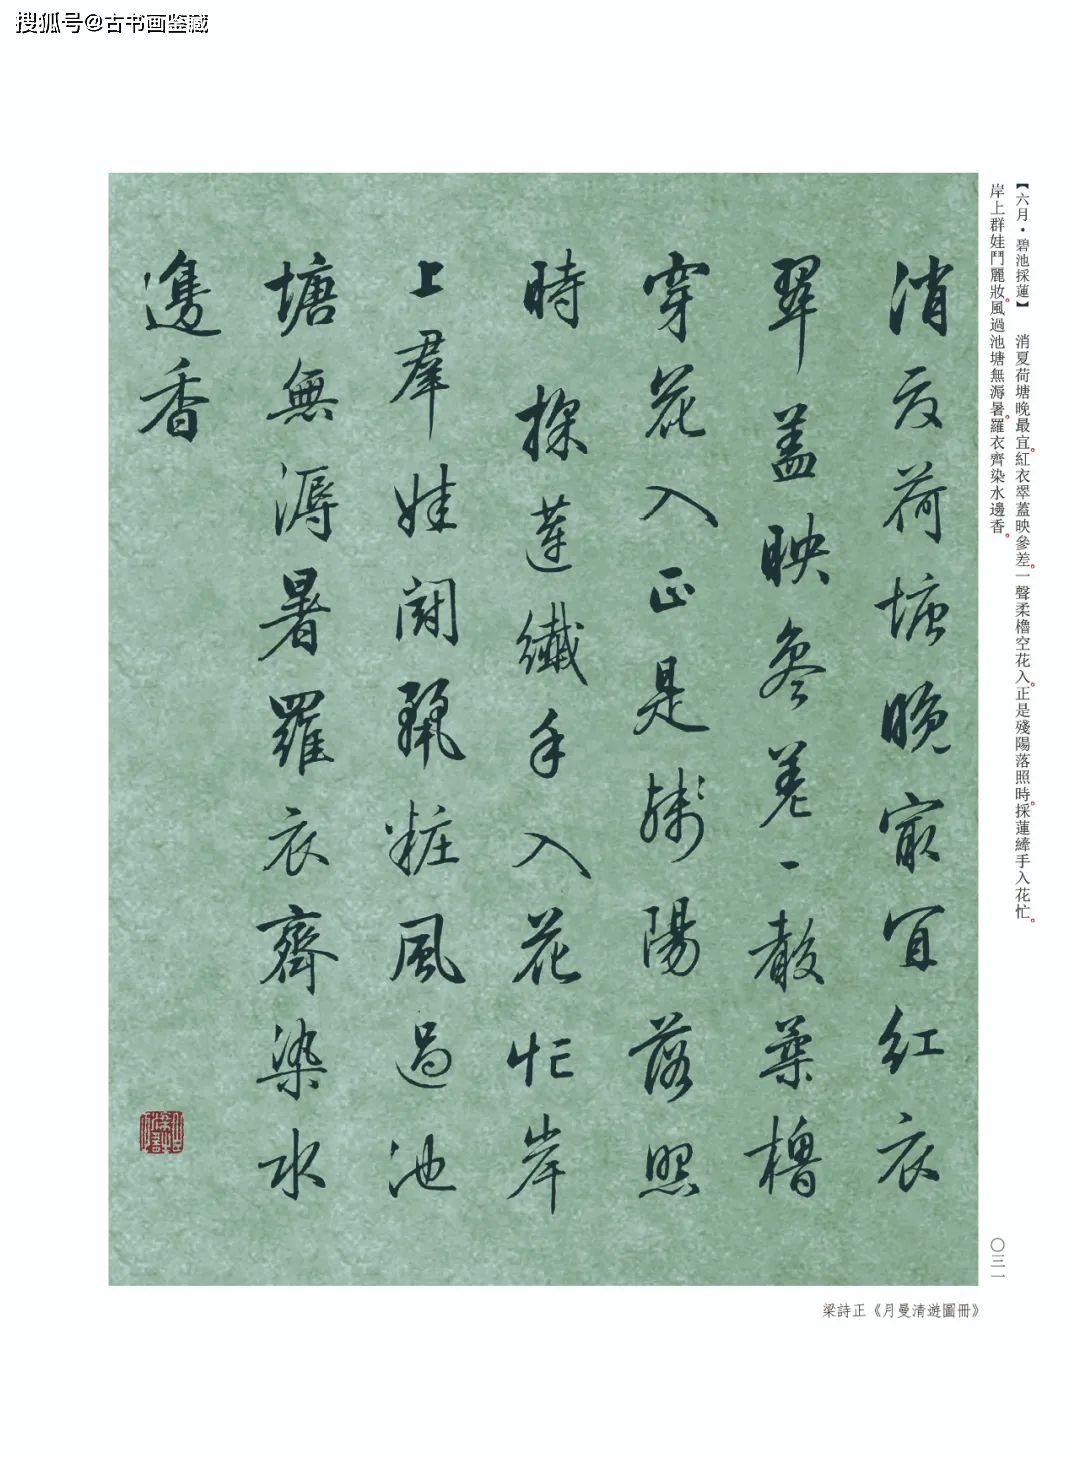 搜狐号@古书画鉴藏
【六月·碧池採蓮】 消夏荷塘晚最宜。紅衣翠蓋映參差。一聲柔櫓空花入。正是殘陽落照時。採蓮縴手入花忙。
岸上群娃鬥麗妝。風過池塘無溽暑。羅衣齊染水邊香。
消夏荷塘晚㝡宜紅衣
翠蓋映參差一聲柔櫓
穿花入正是殘陽落照
時採蓮纖手入花忙岸
上羣娃鬭麗粧風過池
塘無溽暑羅衣齊染水
邊香
〇三一
梁詩正《月曼清遊圖冊》